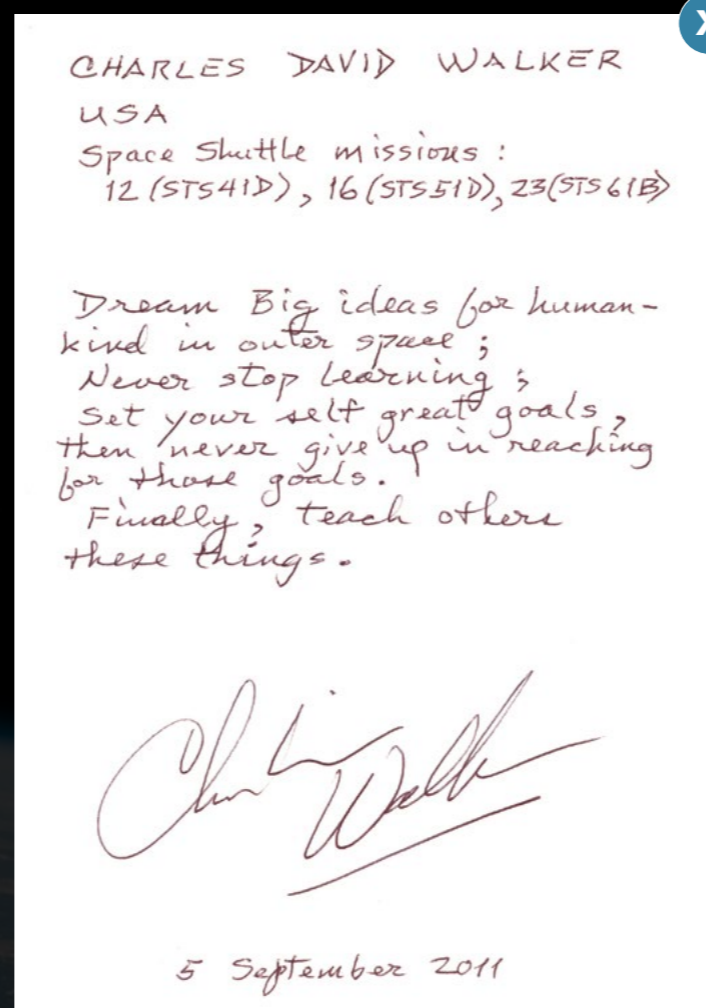 CHARLES DAVID WALKER
USA
Space Shuttle missions:
12 (STS41D), 16 (STS51D), 23(STS61B)
Dream Big ideas for human-
kind in outer space;
Never stop learning;
Set your self great goals,
then never give up in reaching
for those goals.
Finally, teach others
these things.
Charlie Walker
5 September 2011
X